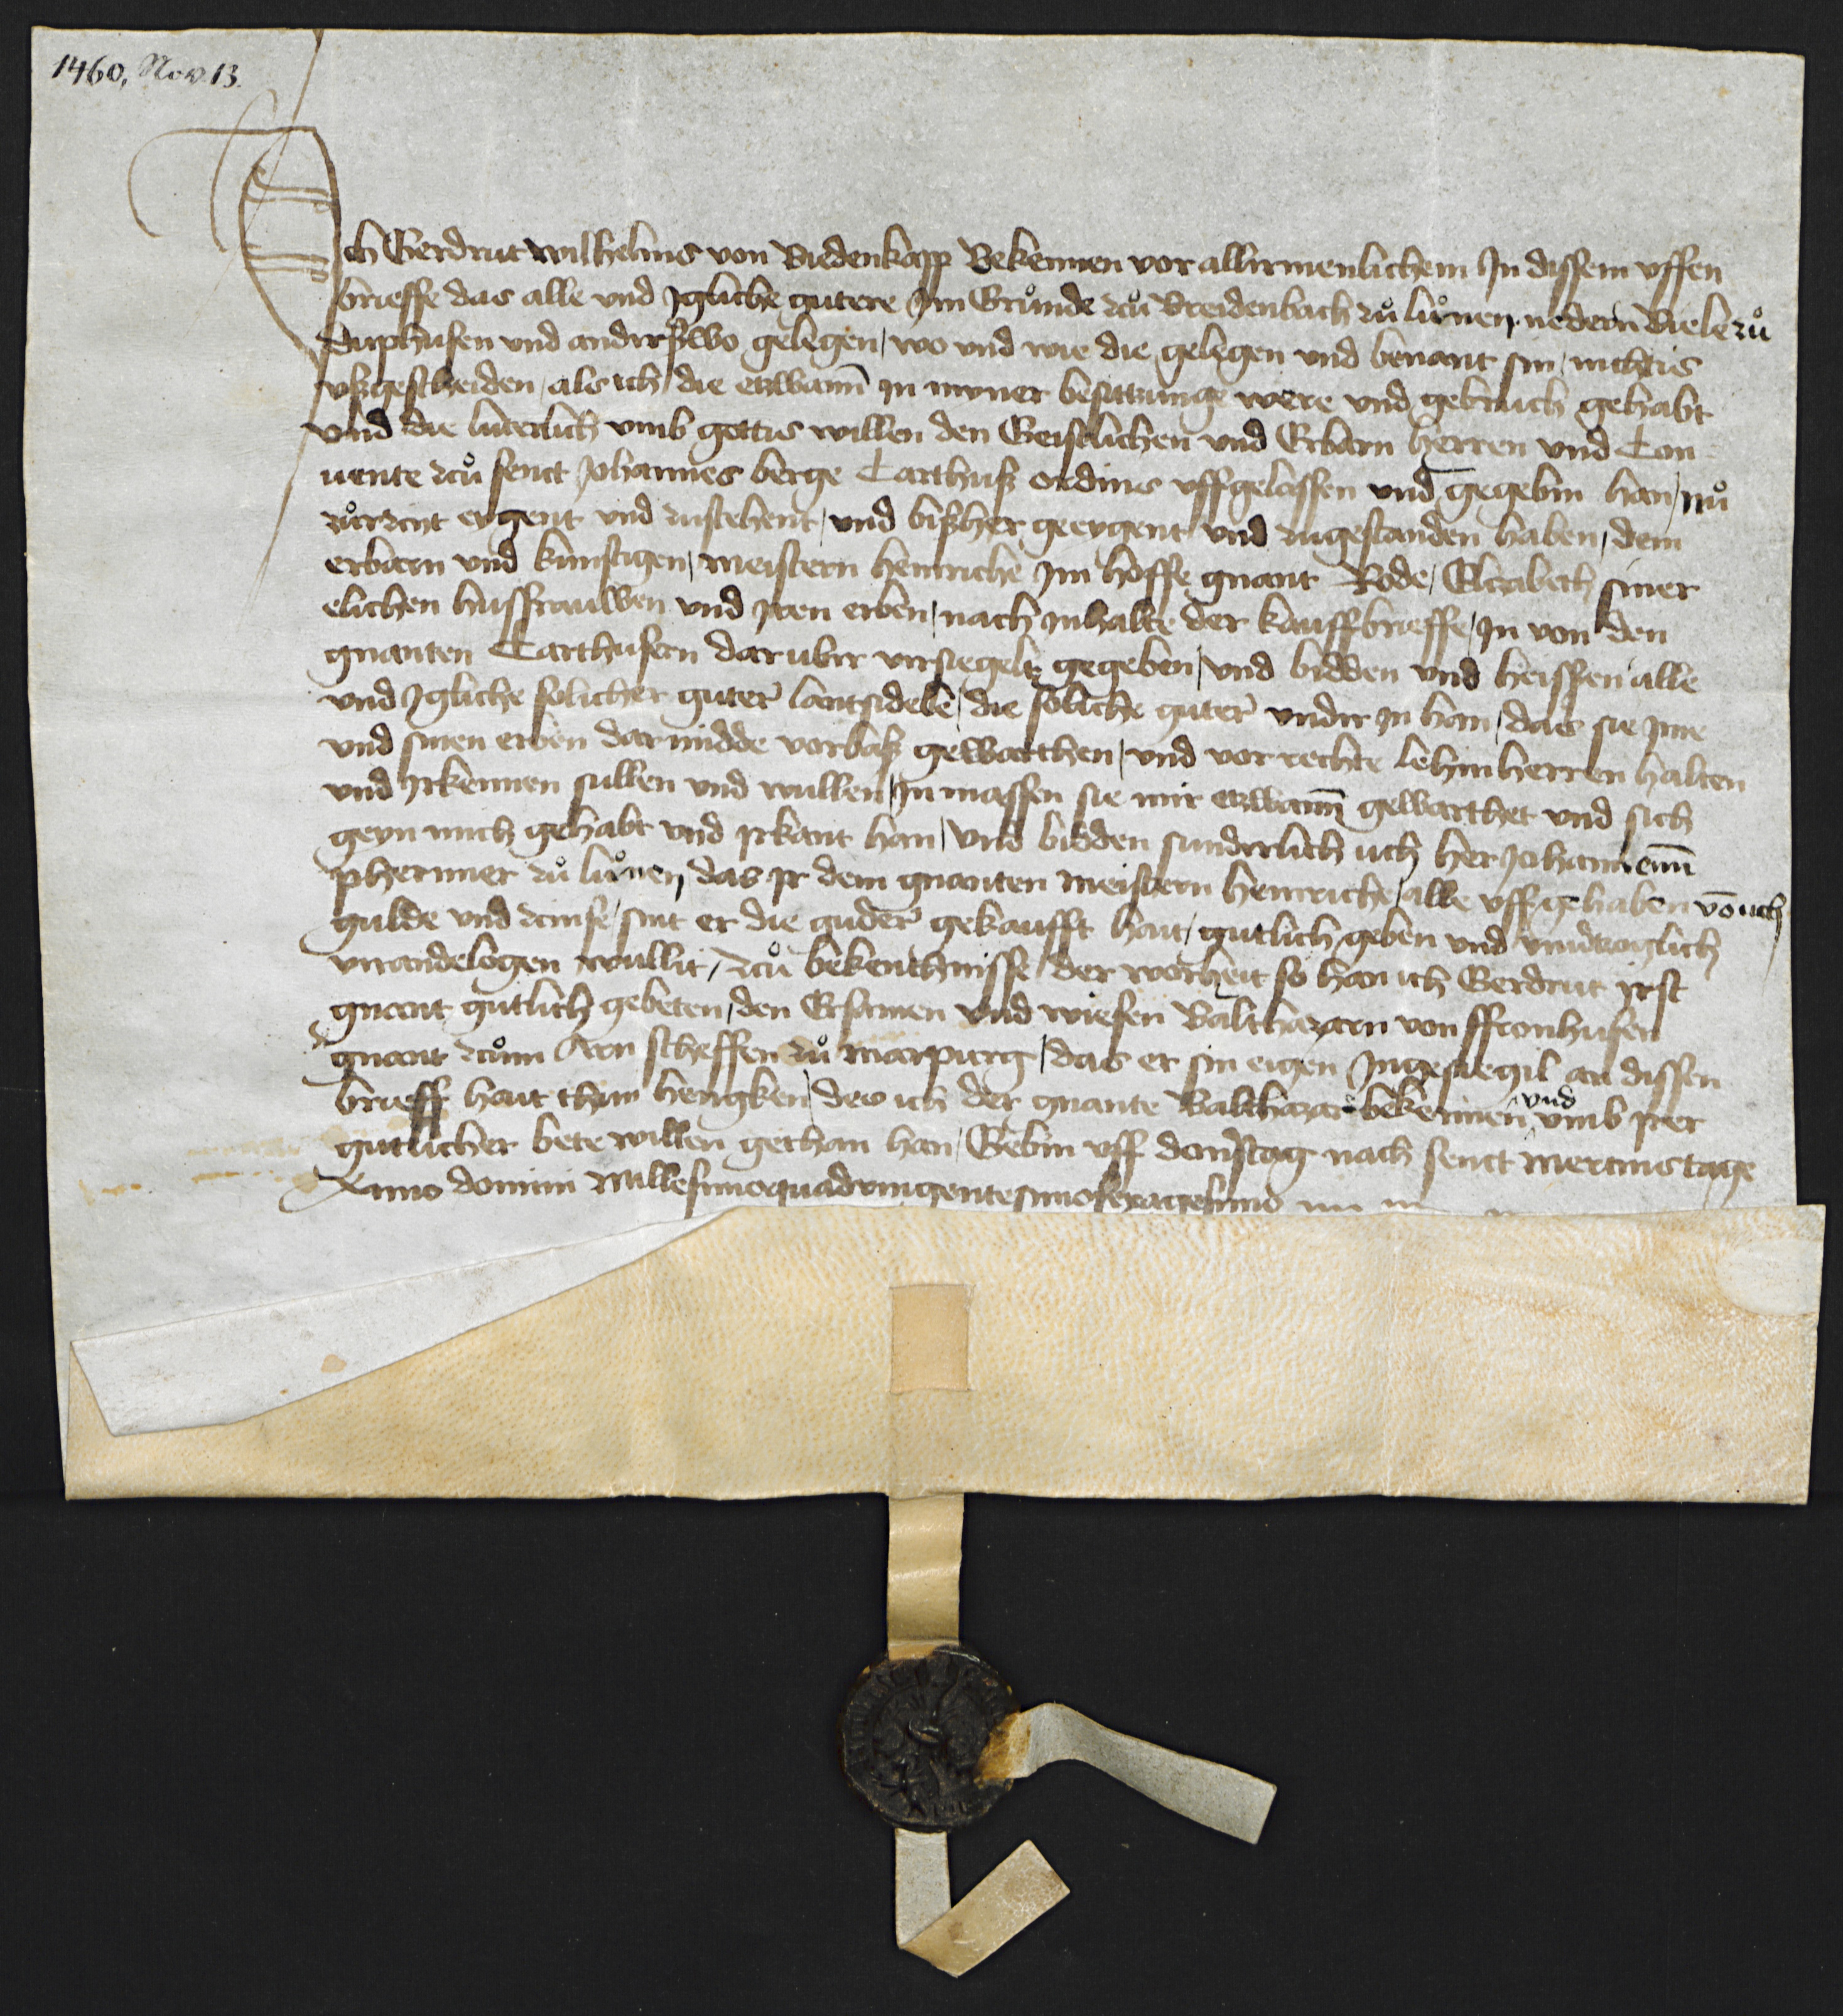 1460, Nov. 13.
Ich Gerdrut Wilhelms von Biedenkapp Bekennen vor allirmenlichem In dissem uffen
brieffe das alle und Igliche gutere Im Grůnde zců Breidenbach zů lixner nedern Viele zů
Duphusen und andirßwo gelegen, wo und wie die gelegen und benant sin, nichtis
ußgescheiden, als ich die etzwann in myner besitzunge were und gebruch gehabt
und die luterlich umb gottis willen den Geistlichen und Erbarn herren und Con
uente zců senct Johannes berge Carthuß ordins uffgelassen und gegebin han, nů
zůrzcyt eygent und zustehent, und bißher geeygent und zugestanden haben, dem
erbarn und kunstigen, meistern Henriche Im hoffe gnant Rode, Elizabeth siner
elichen husfrauwen und iren erben, nach inhalte der kauffbrieffe, In von den
gnanten Carthusern darubir virsiegelt gegeben, und bidden und heissen alle
und Igliche solicher guter lantsidele, die soliche guter undir in han, das sie ime
und sinen erben darmidde vorbaß gewarthen, und vor rechte lehinherren halten
und irkennen sullen und wullen, In massen sie mir etzwann gewarthet und sich
geyn mich gehabt und irkant han, Und bidden sunderlich uch her Johannemm
pherrner zů lixner, das ir dem gnanten meistern Henriche, alle uffgehaben vō uch
gulde und zcinse, sint er die guder gekaufft hait, gutlich geben und unvirzoglich
virandelogen wullit, Zců bekenthnisse der warheit so han ich Gerdrut irst
gnant gutlich gebeten, den Ersamen und wiesen Balthazarn von ffronhusen
gnant zcům Arn scheffen zů Marpurg, das er sin eigen Ingesiegil an dissen
brieff hait thun hengken, des ich der gnante Balthazar bekennen und umb irer
gutlicher bete willen gethan han, Gebin uff donrstag nach senct Mertins tage
Anno domini Millesimoquadringentesimosexagesimo